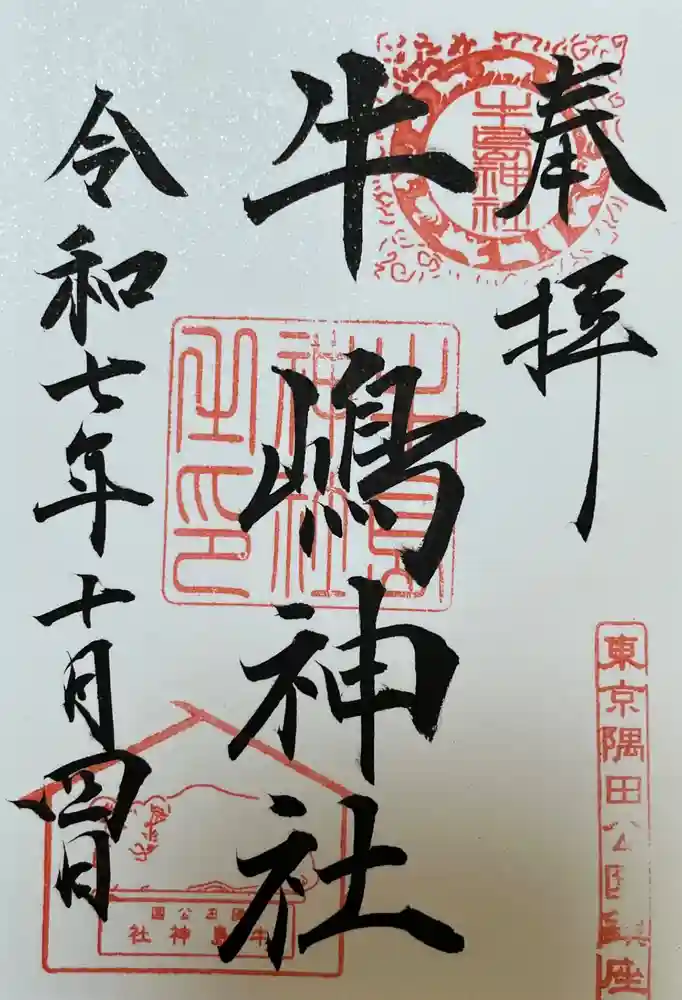 奉拝
東京隅田公園鎮座
牛嶋神社
牛嶋神社
牛島神社之印
令和七年十月四日
隅田公園
牛島神社